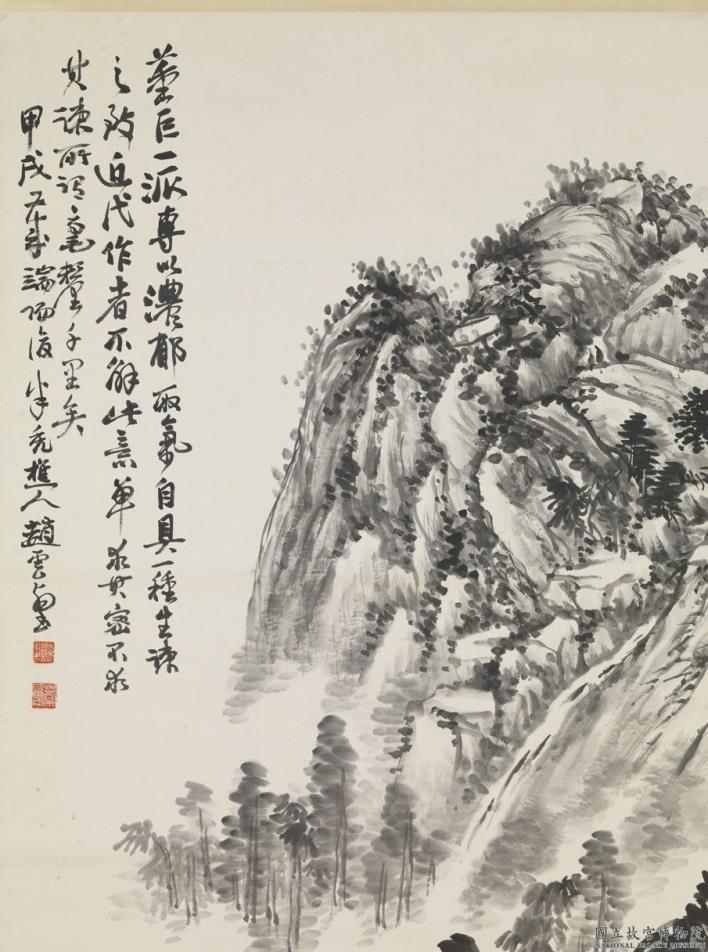 董巨一派專以濃郁取氣自具一種生疎
之致近代作者不解此意單求其密不求
其疎所謂毫釐千里矣
甲戌五月端陽後半禿樵人趙雲壑
國立故宮博物院
NATIONAL PALACE MUSEUM